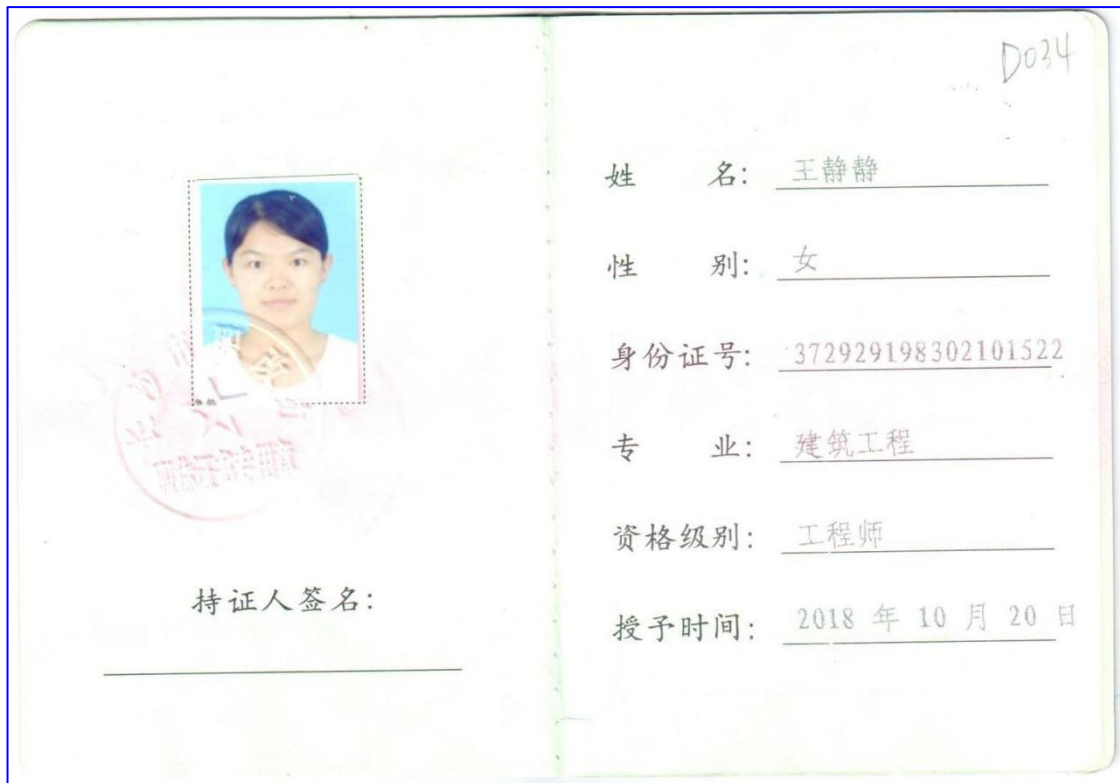 持证人签名:
D034
姓 名: 王静静
性 别: 女
身份证号: 372929198302101522
专 业: 建筑工程
资格级别: 工程师
授予时间: 2018 年 10 月 20 日